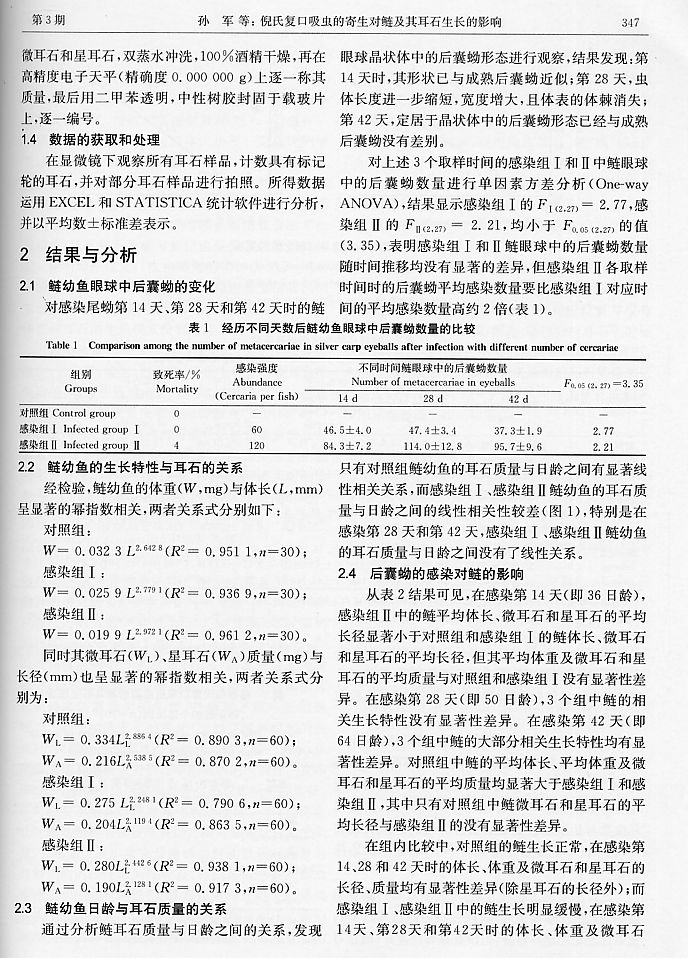 第 3 期
孙 军 等：倪氏复口吸虫的寄生对鲢及其耳石生长的影响
347
微耳石和星耳石，双蒸水冲洗，100%酒精干燥，再在
高精度电子天平(精确度 0. 000 000 g)上逐一称其
质量，最后用二甲苯透明，中性树胶封固于载玻片
上，逐一编号。
1.4 数据的获取和处理
在显微镜下观察所有耳石样品，计数具有标记
轮的耳石，并对部分耳石样品进行拍照。所得数据
运用 EXCEL 和 STATISTICA 统计软件进行分析，
并以平均数±标准差表示。
2 结果与分析
2.1 鲢幼鱼眼球中后囊蚴的变化
对感染尾蚴第 14 天、第 28 天和第 42 天时的鲢
眼球晶状体中的后囊蚴形态进行观察，结果发现：第
14 天时，其形状已与成熟后囊蚴近似；第 28 天，虫
体长度进一步缩短，宽度增大，且体表的体棘消失；
第 42 天，定居于晶状体中的后囊蚴形态已经与成熟
后囊蚴没有差别。
对上述 3 个取样时间的感染组Ⅰ和Ⅱ中鲢眼球
中的后囊蚴数量进行单因素方差分析(One-way
ANOVA)，结果显示感染组Ⅰ的 F Ⅰ(2,27) = 2. 77，感
染组Ⅱ的 F Ⅱ(2,27) = 2. 21，均小于 F 0.05 (2,27) 的值
(3. 35)，表明感染组Ⅰ和Ⅱ鲢眼球中的后囊蚴数量
随时间推移均没有显著的差异，但感染组Ⅱ各取样
时间时的后囊蚴平均感染数量要比感染组Ⅰ对应时
间的平均感染数量高约 2 倍(表 1)。
表 1 经历不同天数后鲢幼鱼眼球中后囊蚴数量的比较
Table 1 Comparison among the number of metacercariae in silver carp eyeballs after infection with different number of cercariae
组别 Groups
致死率/% Mortality
感染强度 Abundance (Cercaria per fish)
不同时间鲢眼球中的后囊蚴数量
Number of metacercariae in eyeballs
14 d 28 d 42 d
F 0.05 (2, 27) =3. 35
对照组 Control group 0 — — — — —
感染组Ⅰ Infected group Ⅰ 0 60 46. 5±4. 0 47. 4±3. 4 37. 3±1. 9 2. 77
感染组Ⅱ Infected group Ⅱ 4 120 84. 3±7. 2 114. 0±12. 8 95. 7±9. 6 2. 21
2.2 鲢幼鱼的生长特性与耳石的关系
经检验，鲢幼鱼的体重(W，mg)与体长(L，mm)
呈显著的幂指数相关，两者关系式分别如下：
对照组：
W = 0. 032 3 L^2. 642 8 (R² = 0. 951 1，n=30)；
感染组Ⅰ：
W = 0. 025 9 L^2. 779 1 (R² = 0. 936 9，n=30)；
感染组Ⅱ：
W = 0. 019 9 L^2. 972 1 (R² = 0. 961 2，n=30)。
同时其微耳石(W_L)、星耳石(W_A)质量(mg)与
长径(mm)也呈显著的幂指数相关，两者关系式分
别为：
对照组：
W_L = 0. 334L_L^2. 886 4 (R² = 0. 890 3，n=60)；
W_A = 0. 216L_A^2. 538 5 (R² = 0. 870 2，n=60)。
感染组Ⅰ：
W_L = 0. 275 L_L^2. 248 1 (R² = 0. 790 6，n=60)；
W_A = 0. 204L_A^2. 119 4 (R² = 0. 863 5，n=60)。
感染组Ⅱ：
W_L = 0. 280L_L^2. 442 6 (R² = 0. 938 1，n=60)；
W_A = 0. 190L_A^2. 128 1 (R² = 0. 917 3，n=60)。
2.3 鲢幼鱼日龄与耳石质量的关系
通过分析鲢耳石质量与日龄之间的关系，发现
只有对照组鲢幼鱼的耳石质量与日龄之间有显著线
性相关关系，而感染组Ⅰ、感染组Ⅱ鲢幼鱼的耳石质
量与日龄之间的线性相关性较差(图 1)，特别是在
感染第 28 天和第 42 天，感染组Ⅰ、感染组Ⅱ鲢幼鱼
的耳石质量与日龄之间没有了线性关系。
2.4 后囊蚴的感染对鲢的影响
从表 2 结果可见，在感染第 14 天(即 36 日龄)，
感染组Ⅱ中的鲢平均体长、微耳石和星耳石的平均
长径显著小于对照组和感染组Ⅰ的鲢体长、微耳石
和星耳石的平均长径，但其平均体重及微耳石和星
耳石的平均质量与对照组和感染组Ⅰ没有显著性差
异。在感染第 28 天(即 50 日龄)，3 个组中鲢的相
关生长特性没有显著性差异。在感染第 42 天(即
64 日龄)，3 个组中鲢的大部分相关生长特性均有显
著性差异。对照组中鲢的平均体长、平均体重及微
耳石和星耳石的平均质量均显著大于感染组Ⅰ和感
染组Ⅱ，其中只有对照组中鲢微耳石和星耳石的平
均长径与感染组Ⅱ的没有显著性差异。
在组内比较中，对照组的鲢生长正常，在感染第
14、28 和 42 天时的体长、体重及微耳石和星耳石的
长径、质量均有显著性差异(除星耳石的长径外)；而
感染组Ⅰ、感染组Ⅱ中的鲢生长明显缓慢，在感染第
14天、第28天和第42天时的体长、体重及微耳石